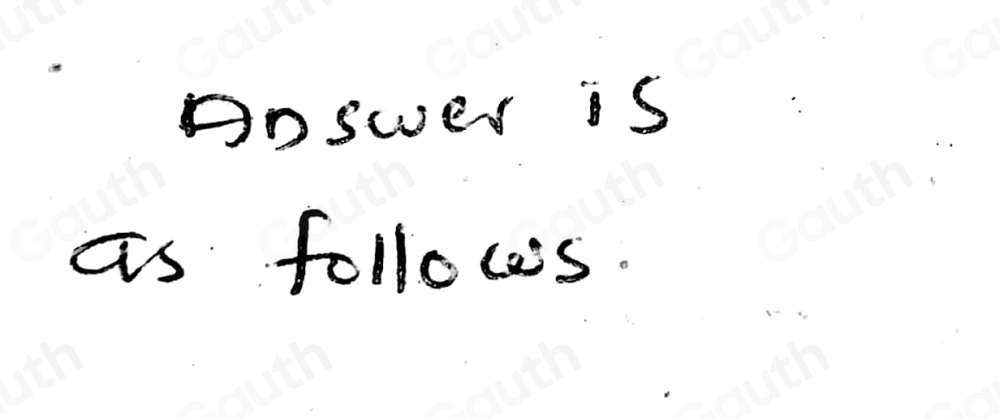 Answer is
as follows.